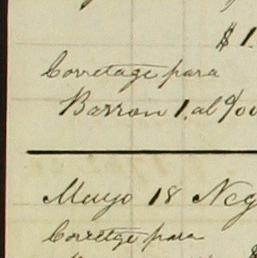 $1.
Corretage para
Barron 1. al %
Mayo 18 Neg
Corretge para